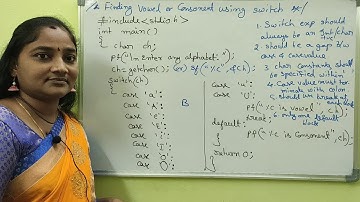 /* Finding Vowel or Consonent using switch */
#include<stdio.h>
int main()
{
char ch;
pf("\n Enter any alphabet:");
ch=getchar(); (or) sf("%c",&ch);
switch(ch)
{
case 'a':
case 'A':
case 'e':
case 'E':
case 'i':
case 'I':
case 'o':
case 'O':
B
case 'u':
case 'U':
pf("%c is vowel", ch);
break;
default:
{
pf("%c is Consonent", ch);
}
}
return 0;
}
1. Switch exp should
always be an int/char
2. should be a gap b/w
case & case value
3. char constants should
be specified within ' '
4. Case value must ter
minate with colon
5. should use break at
6. only one default
block